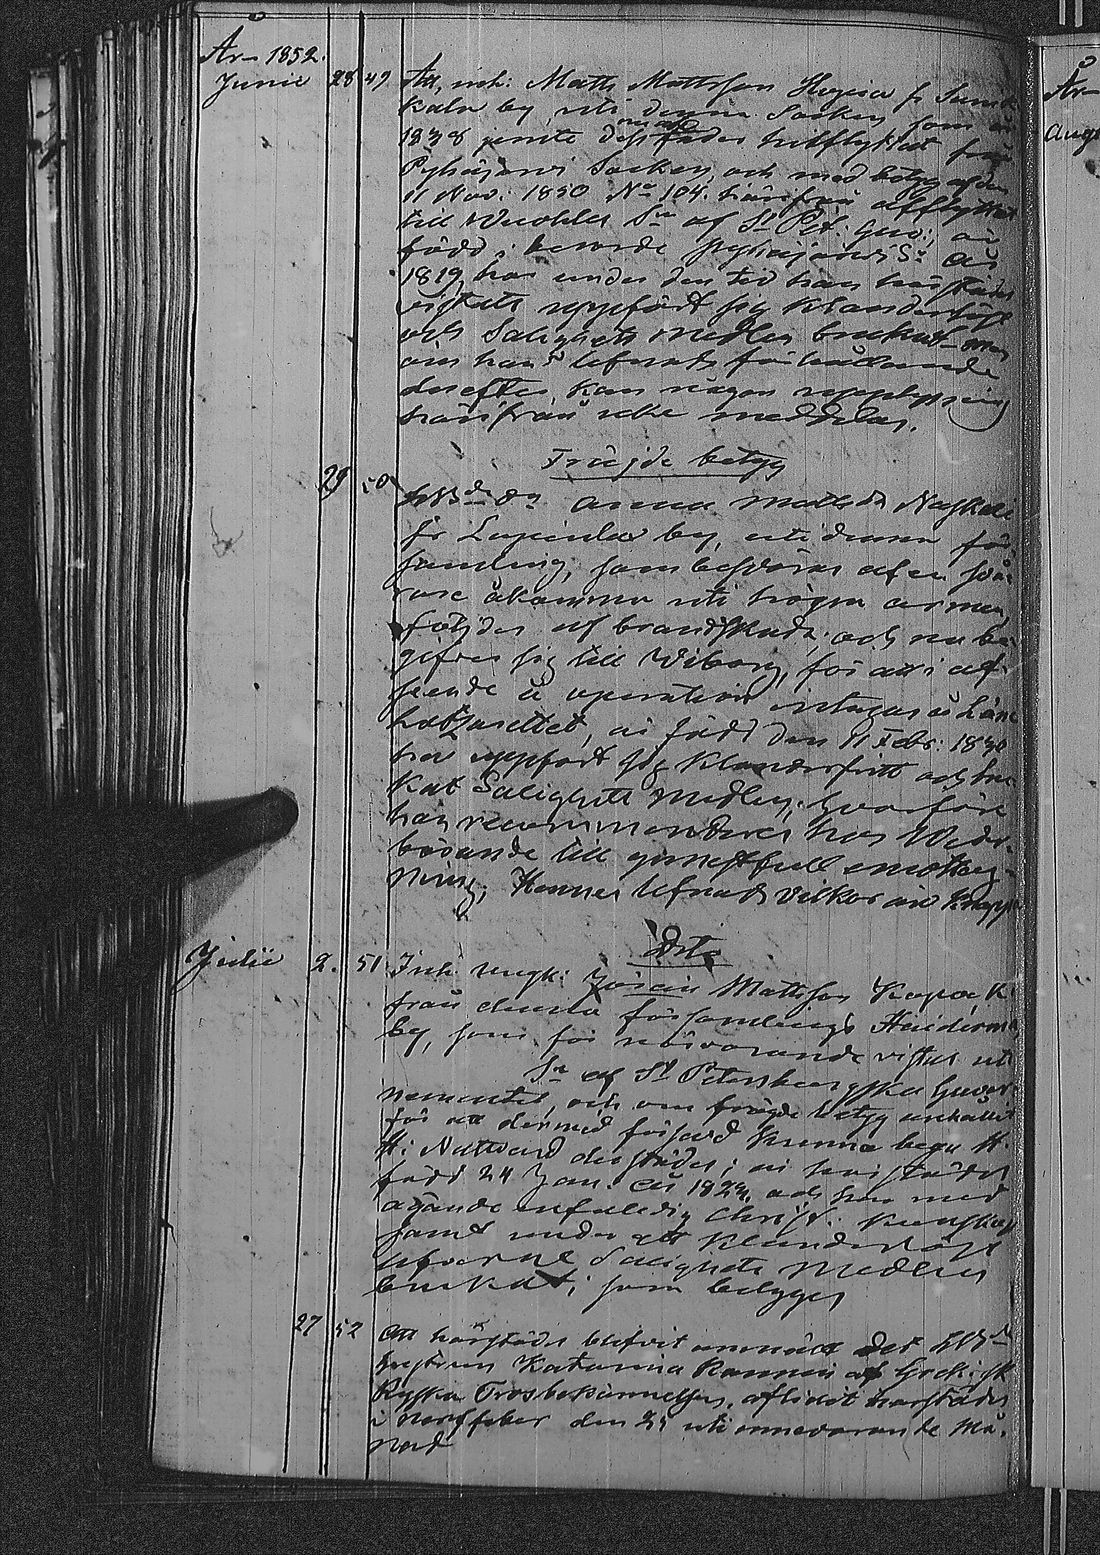 År 1852.
Junii 28 49 Att, inh: Matts Mattsson fr
kala by, uti denna Socken som år
1838 jemte dess fader hitflyttat från
Pyhäjärvi Socken och med betyg af den
11 Nov: 1850 No 104. härifrån afflyttat
till Wuohlas Sn af St Pet: Guv:, är
född i berörde Pyhäjärvi Sn år
1819, har under den tid han härstädes
vistats uppfört sig klanderlöst
och Salighets medlen brukat men
om hans lefnads förhållande
derefter kan någon upplysning
härifrån icke meddelas.
Fräjde betyg
29 50 Anna Matts dr
fr by, uti denna för-
samling, som besväras af en svå-
rare åkomma uti högra armen,
följder af brandskada, och nu be-
gifver sig till Wiborg, för att i af-
seende å operation intagas å Läne
Lazarettet, är född den 11 Febr: 1830
har uppfört sig klanderfritt och bru-
kat Salighets medlen; hvarföre
hon recommenderas hos Weder-
börande till gunstfull emottag-
ning; Hennes lefnads vilkor äro knappa
Dito
Julii 2. 51 Inh: ungk: Jöran Mattsson
från denna församlings
by, som för närvarande vistas uti
Sn af St Petersburgska Guver-
nementet, och om fräjde betyg anhållit
för att dermed försedd kunna begå H.
H: Nattvard derstädes; är härstädes
född 24 Jan: år 1822, och har med
ägande Christ: kunskap
samt under ett klanderlöst
uppförande Salighets medlen
brukat; som betygges
27 52 Att härstädes blifvit anmäldt det
hustrun Katarina af Grekisk
Ryska Trosbekännelsen, aflidit härstädes
i nerffeber den 25 uti innevarande Må-
nad
År
Augu